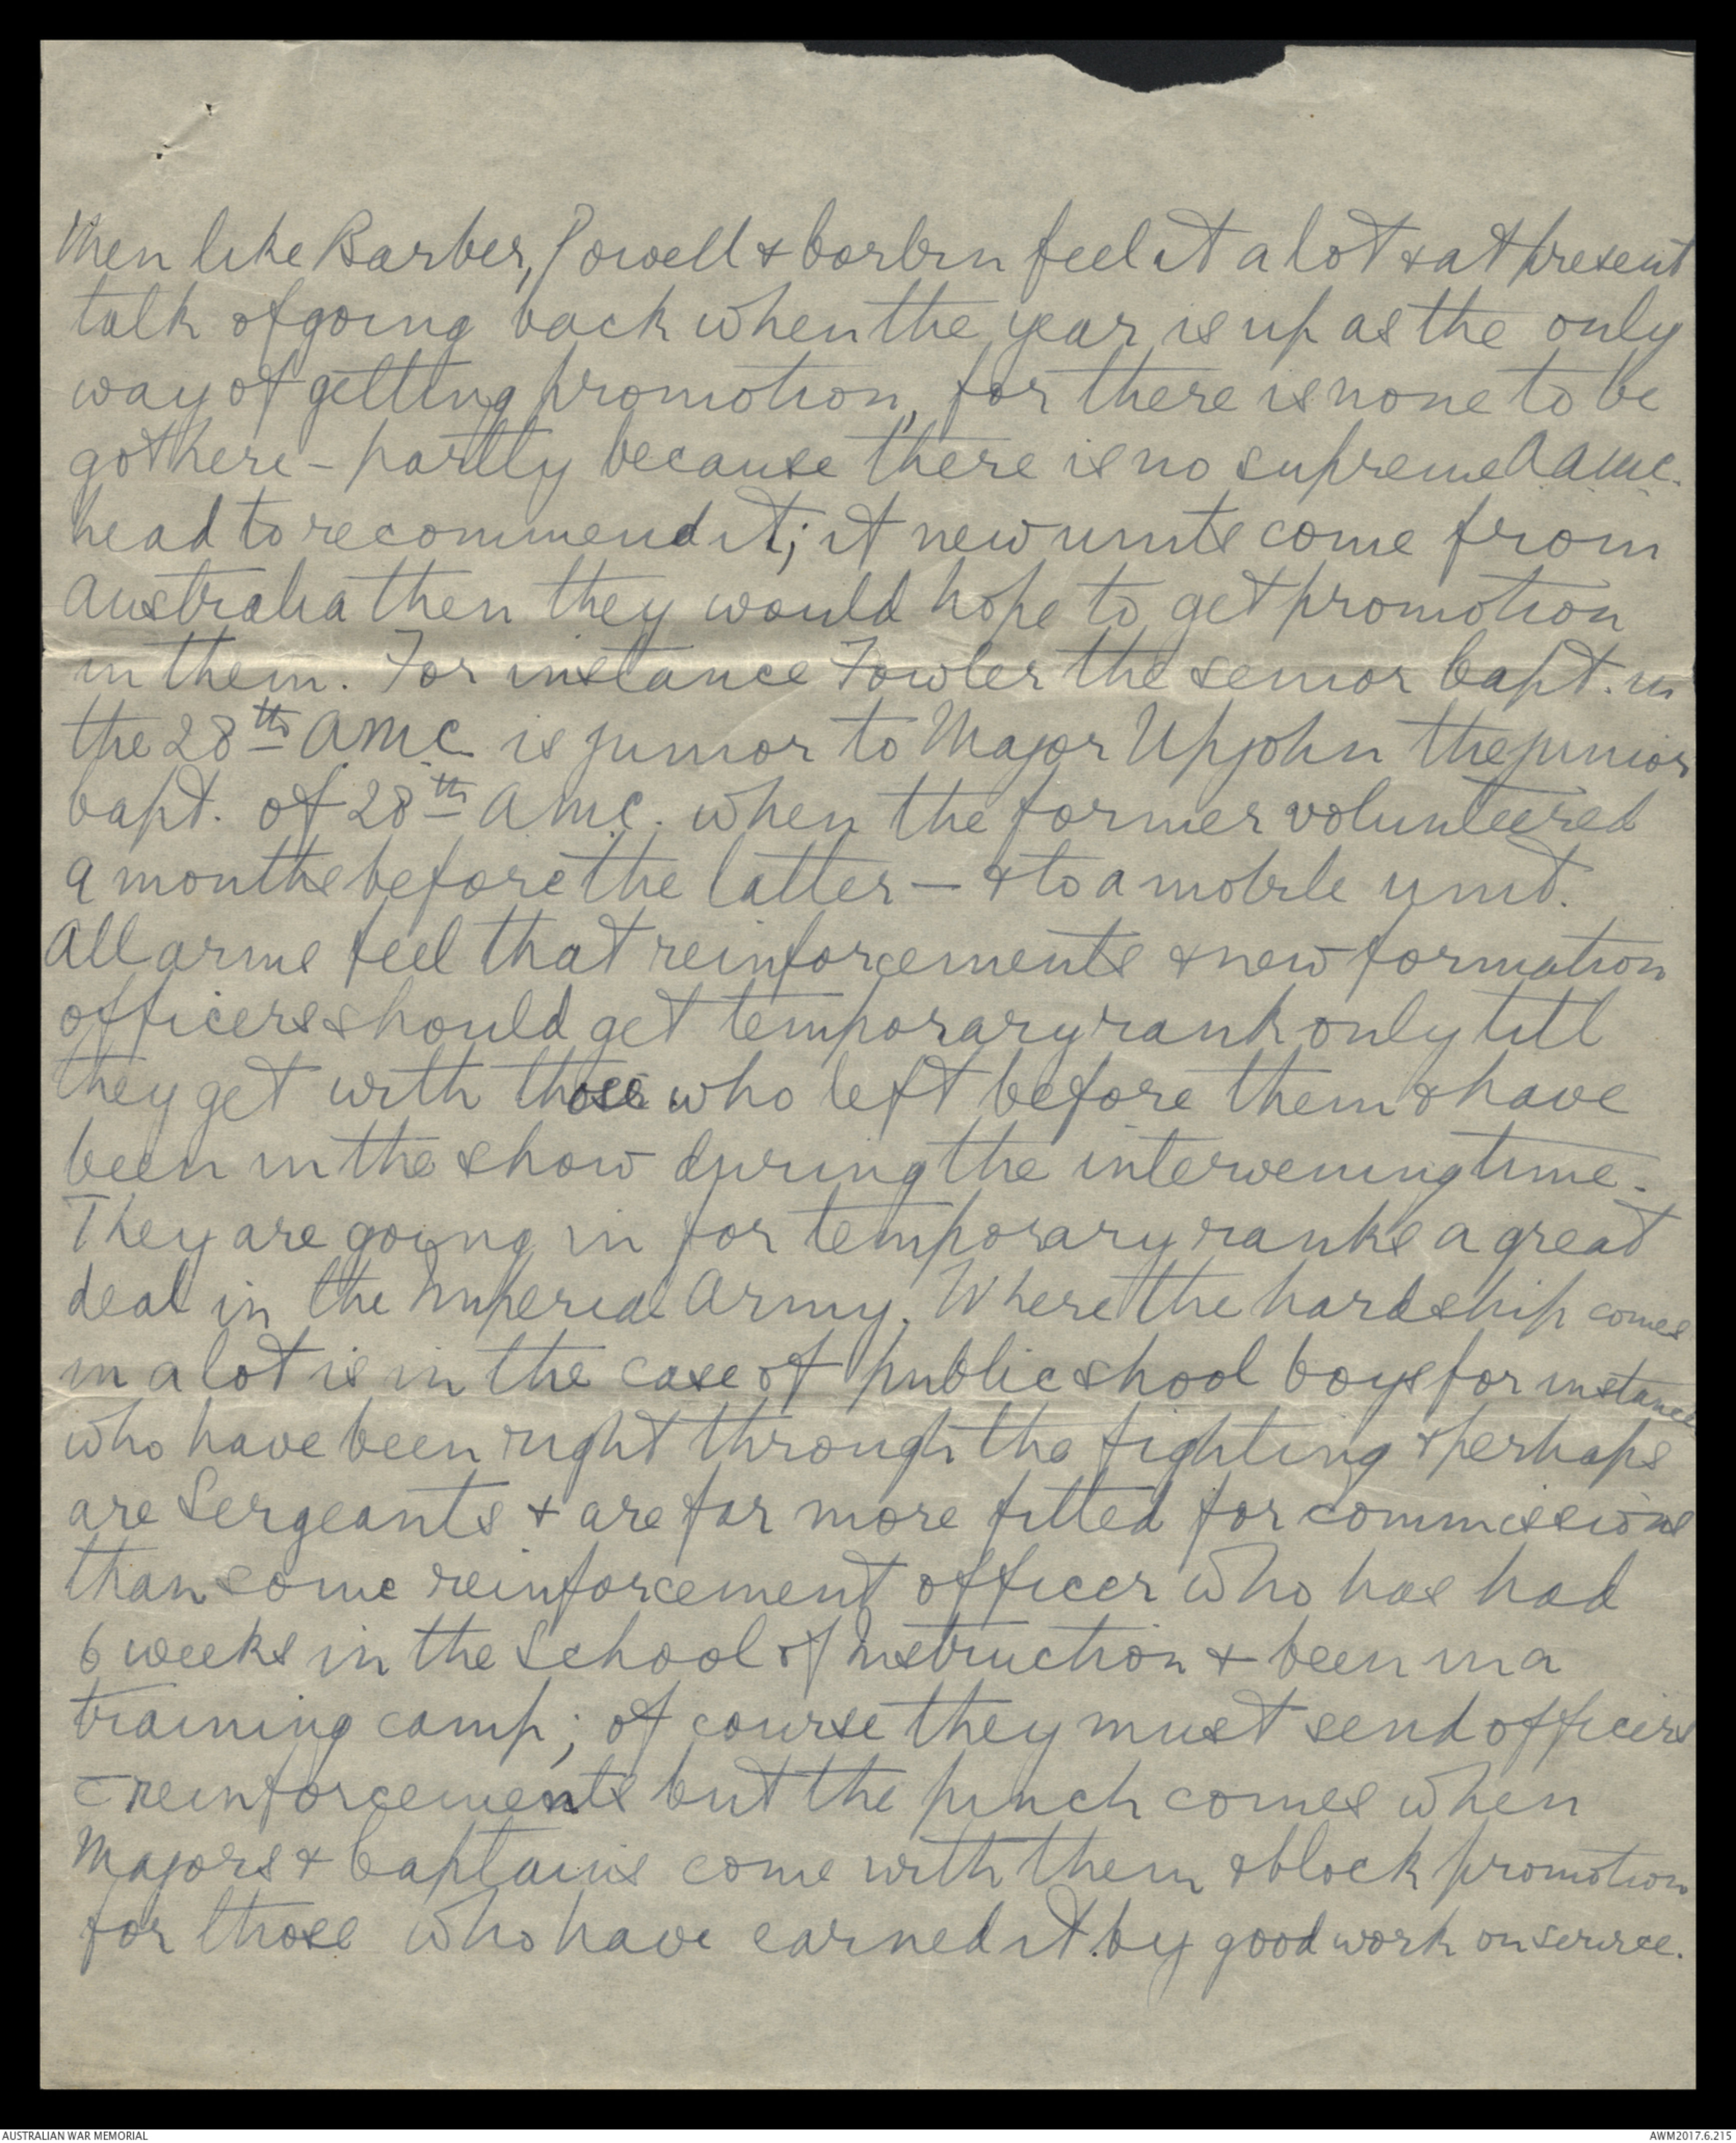 Men like Barber, Powell & Corbin feel it a lot & at present
talk of going back when the year is up as the only
way of getting promotion, for there is none to be
got here - partly because there is no supreme A.A.M.C.
head to recommend it; if new units come from
Australia then they would hope to get promotion
in them. For instance Fowler the senior Capt. in
the 28th A.M.C. is junior to Major Upjohn the junior
Capt. of 28th A.M.C. when the former volunteered
9 months before the latter — & to a mobile unit.
All arms feel that reinforcements & new formation
officers should get temporary rank only till
they get with those who left before them & have
been in the show during the intervening time.
They are going in for temporary ranks a great
deal in the Imperial Army. Where the hardship comes
in a lot is in the case of public shool boys for instance
who have been right through the fighting & perhaps
are Sergeants & are far more fitted for commissions
than some reinforcement officer who has had
6 weeks in the School of Instruction & been in a
training camp; of course they must send officers
c reinforcements but the pinch comes when
Majors & Captains come with them & block promotion
for those who have earned it by good work on service.
AUSTRALIAN WAR MEMORIAL
AWM2017.6.215